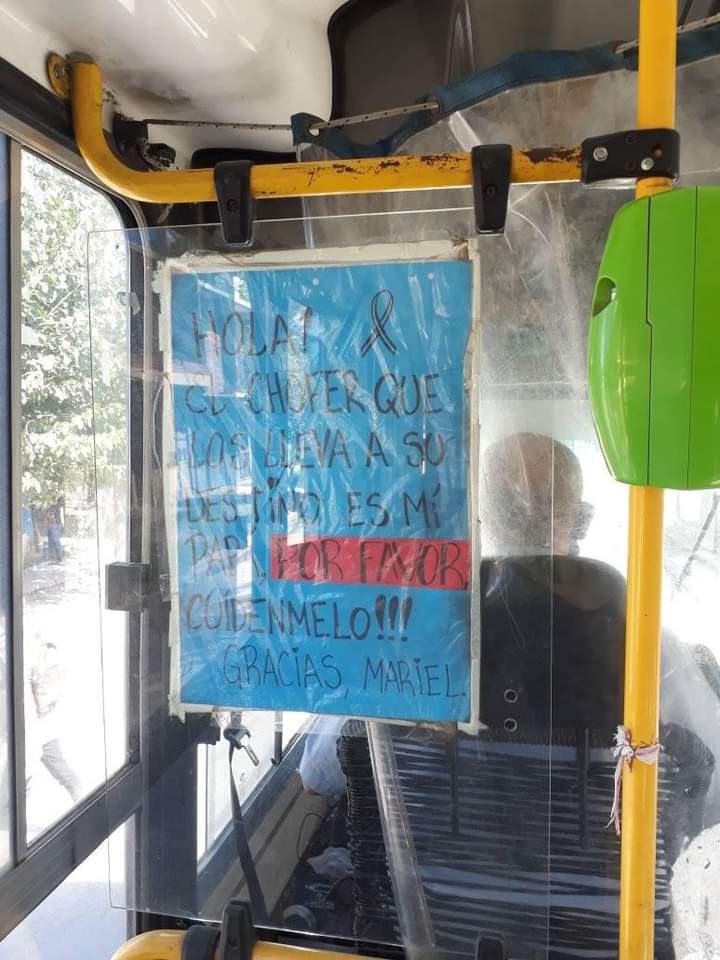 HOLA!
EL CHOFER QUE
LOS LLEVA A SU
DESTINO ES MÍ
PAPÁ, POR FAVOR,
CUIDENMELO!!!
GRACIAS, MARIEL.